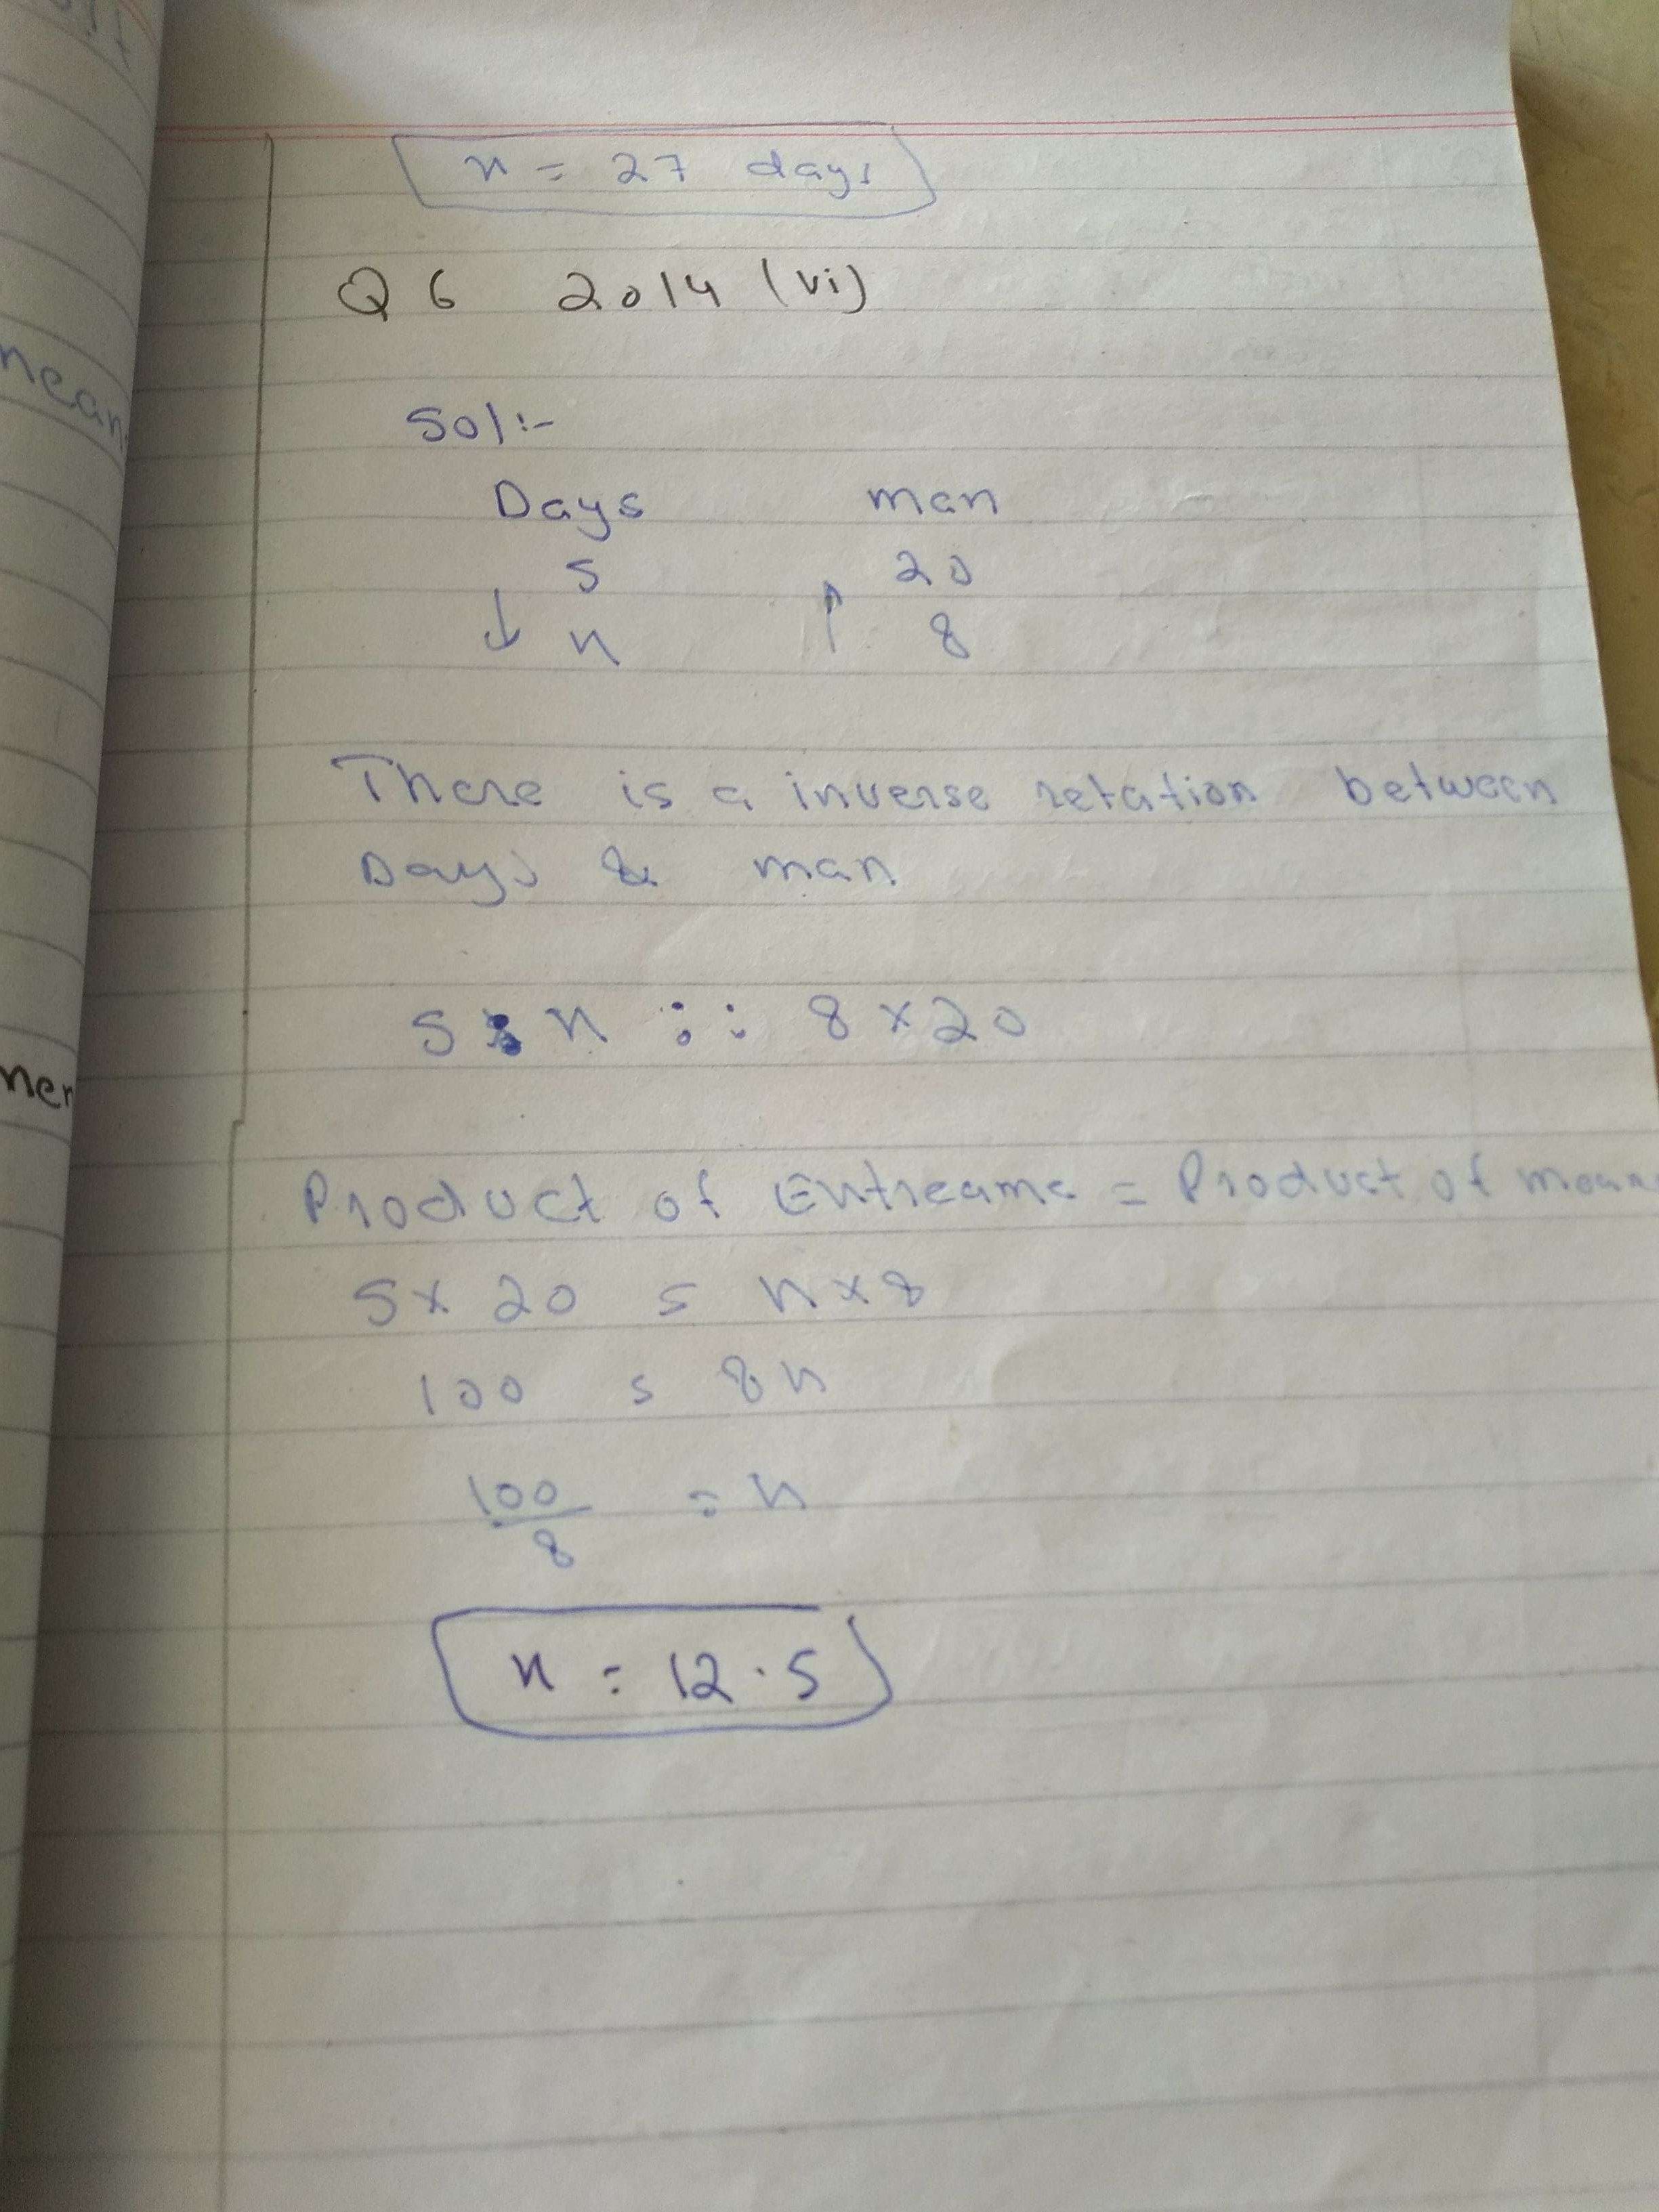 n = 27 days
Q 6 2014 (vi)
Sol:-
Days man
5 20
↓ n ↑ 8
There is a inverse relation between
Days & man
5 : n :: 8 × 20
Product of Entreame = Product of mean
5 × 20 = n × 8
100 = 8n
100/8 = n
n = 12.5
mean